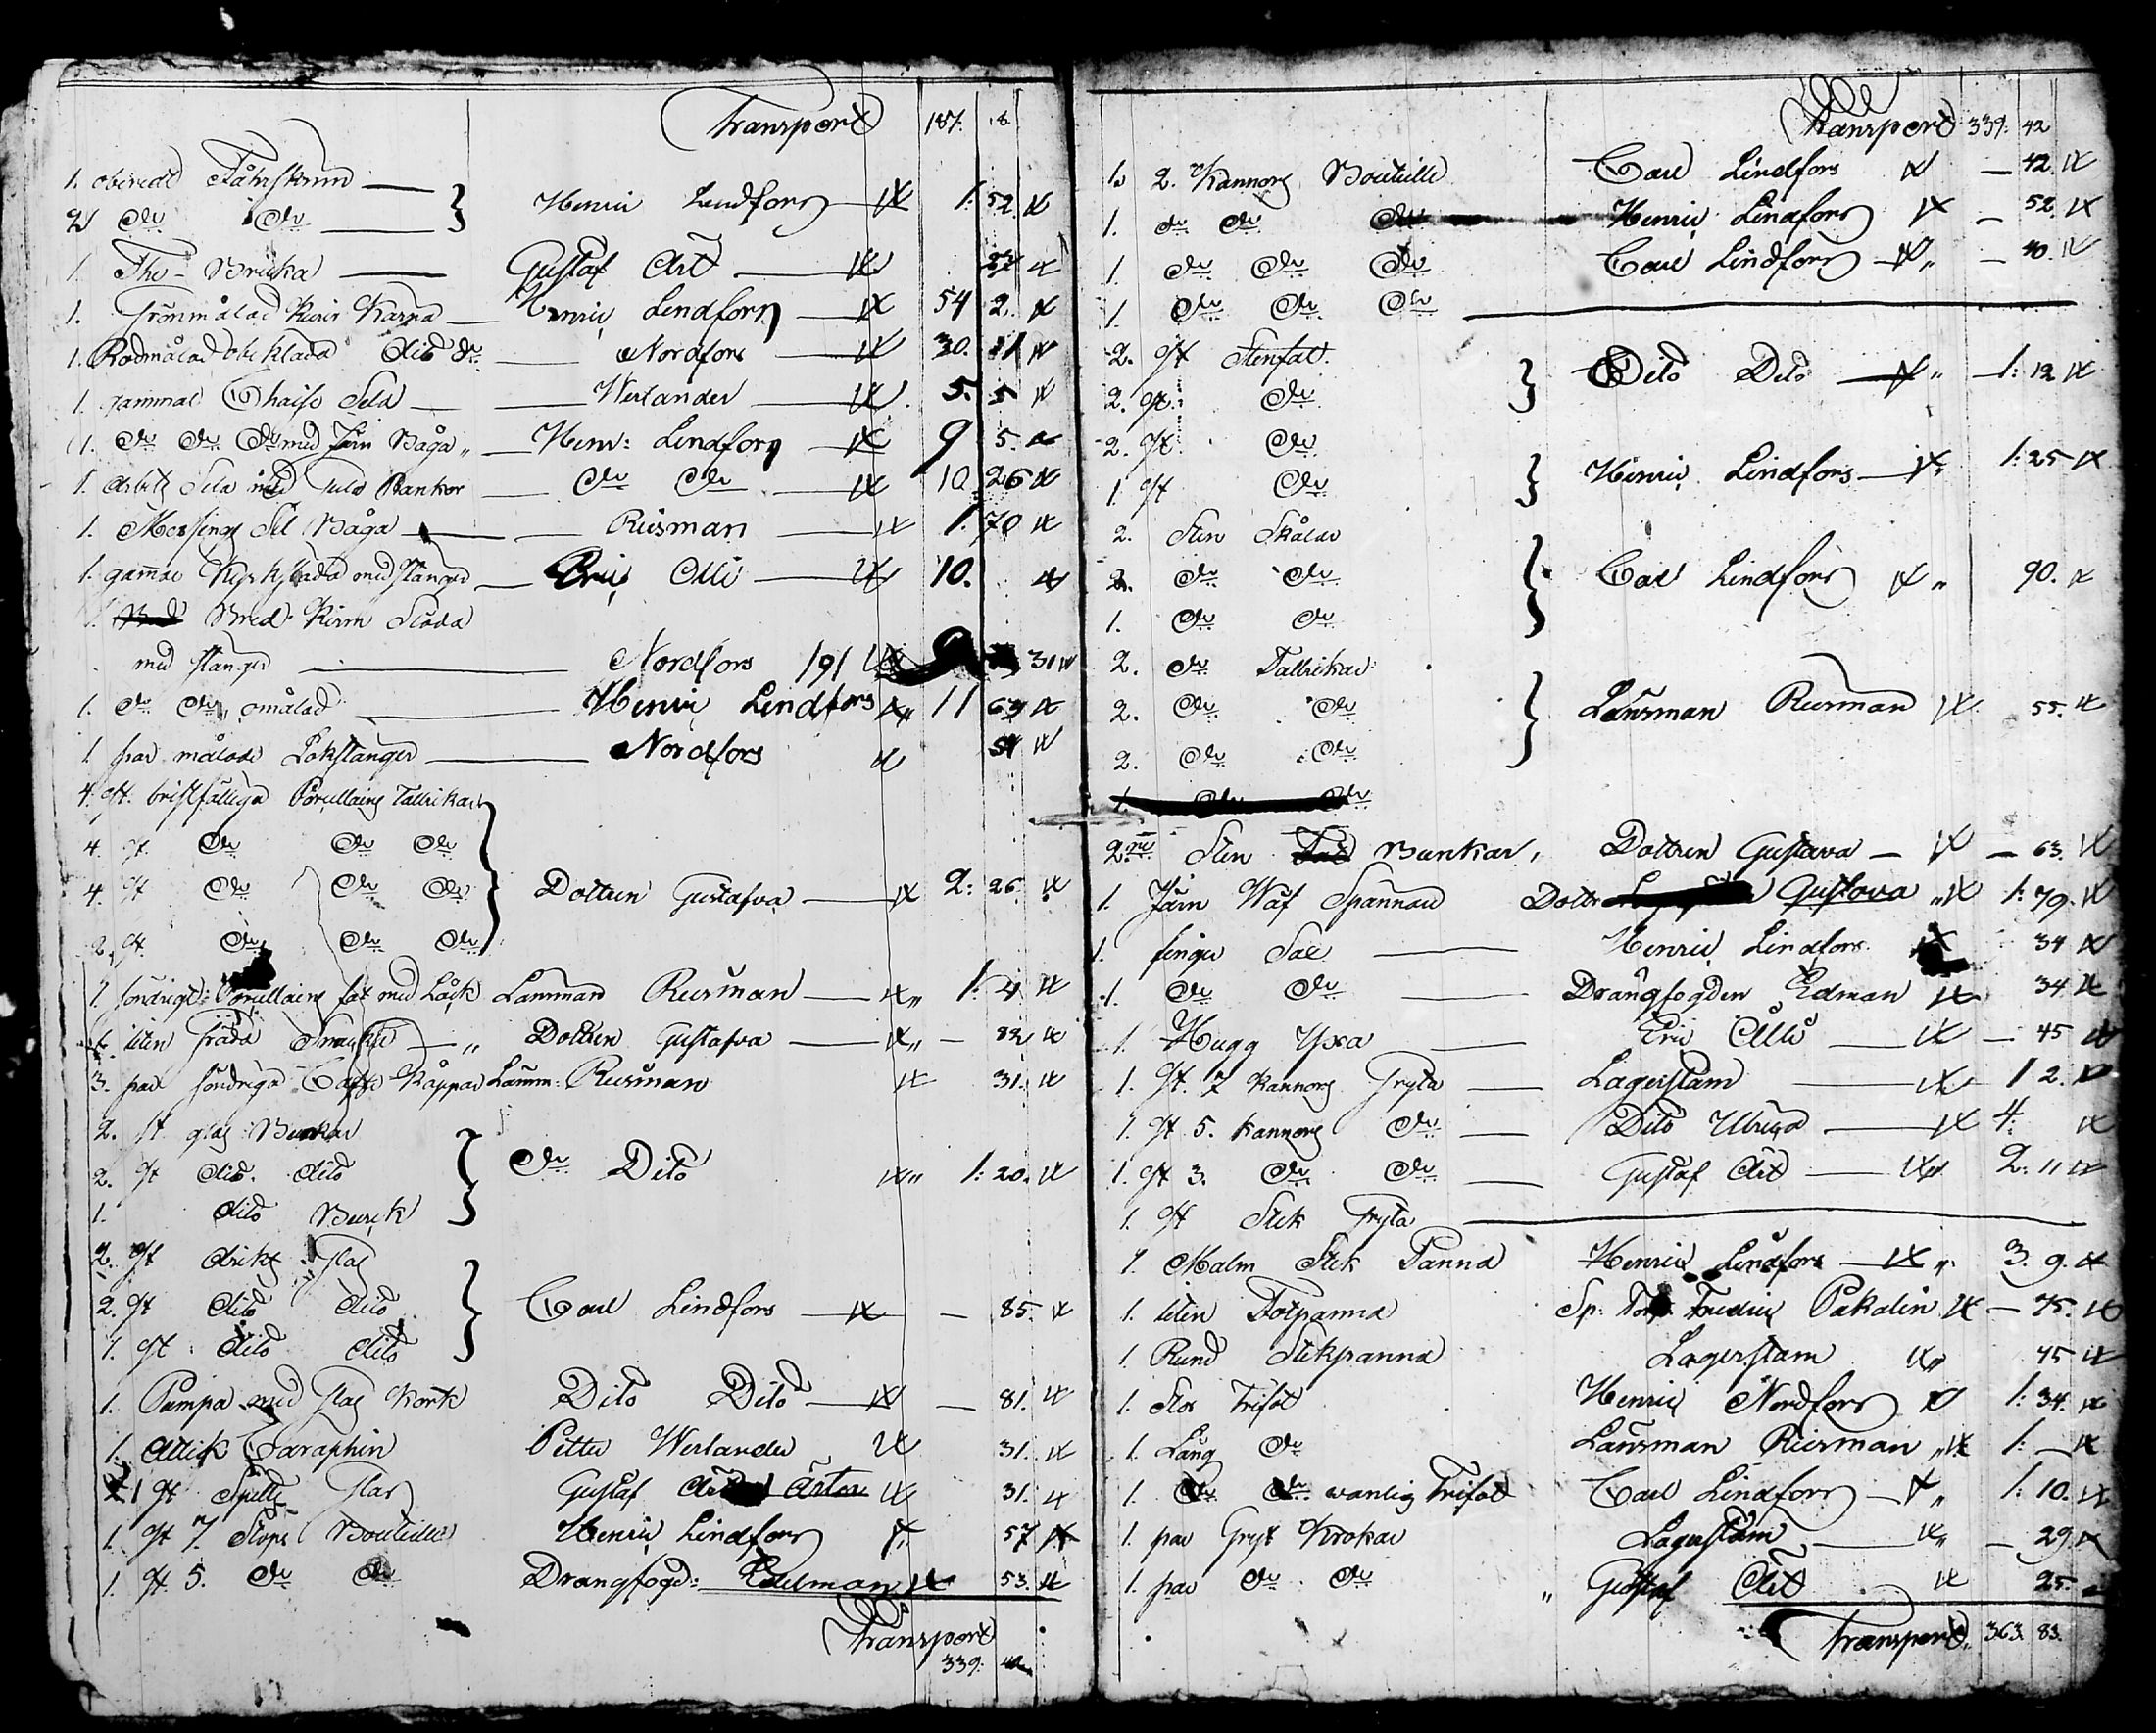 Transport 187. 18
1. oberedt Fåhrskinn
2 Do Do } Henric Lindfors 1. 52
1. The-Bricka Gustaf Art
1. Grönmålad Kärra Henric Lindfors 54 2.
1. Rödmålad Dito Do Nordfors 30. 11
1. gammal Chaise Sela Werlander 5. 5
1. Do Do Do med Järn Båga Henr: Lindfors 9 5.
1. Arbets Sela med Rankor Do Do 10. 26
1. Messings Sel Båga Riisman 1. 70
1. gamal Kyrksläda med stänger Eric Olli 10.
1. Bred Kirm Släda
med stänger Nordfors 191 31
1. Do Do omålad Henric Lindfors 11 64
1 par målade Lökstänger Nordfors 54
4. st. bristfälliga Porcellains Tallrikar
4. st. Do Do Do
4. st Do Do Do } Dottren Gustafva 2: 26.
2. st. Do Do Do
1. söndrigt Porcellains fat med Låck Länsman Riisman 1. 4
1. liten Grädd Snäcka Dottren Gustafva 83
3. par söndriga Caffe Koppar Länsm: Riisman 31.
2. st glas Burkar
2. st dito dito } Do Dito 1: 20.
1. dito Burck
2. st driks Glas
2. st dito dito } Carl Lindfors 85.
1. st dito dito
1. Pumpa med Glas Kork Dito Dito 81.
1. Attick Saraphin Petter Werlander 31.
1 st Spetts Glas Gustaf 31.
1. st 7. Stops Bouteille Henric Lindfors 57
1. st. 5. Do Do Drängfogd: Edelman 53.
Transport
339: 42
Transport 339: 42
1. 2. Kannors Bouteille Carl Lindfors 42.
1. do do do Henric Lindfors 52.
1. Do Do Do Carl Lindfors 40.
1. Do Do Do
2. st Stenfat
2. st. Do } Dito Dito 1: 12
2. st. Do
1. st Do } Henric Lindfors 1: 25
2. Sten Skålar
2. Do Do } Carl Lindfors 90.
1. Do Do
2. Do Tallrikar
2. Do Do } Länsman Riisman 55.
2. Do Do
1. Do Do
2.ne Sten Fat Bunkar, Dottren Gustava 63.
1. Järn Wäf Spännare Dottr Gustova 1: 79.
1. finger Sax Henric Lindfors 34
1. Do Do Drängfogden Edman 34
1. Hugg Yxa Eric Ollé 45
1. st. 7 Kannors Gryta Lagerstam 1 2.
1. st 5. kannors Do Dito Ulrica 4:
1. st 3. Do Do Gustaf Art 2: 11
1. st Stek Gryta
1. Malm Stek Panna Henric Lindfors 3. 9.
1. liten Fotpanna Sp: Fredric Pakalin 75.
1. Rund Stekpanna Lagerstam 45
1. Stor Trefot Henric Nordfors 1: 34.
1. Lång Do Länsman Riisman 1:
1. Do Do wanlig Trifot Carl Lindfors 1. 10.
1. par Gryt Krokar Lagerstam 29
1. par Do Do Gustaf Art 25.
Transport 363. 83.